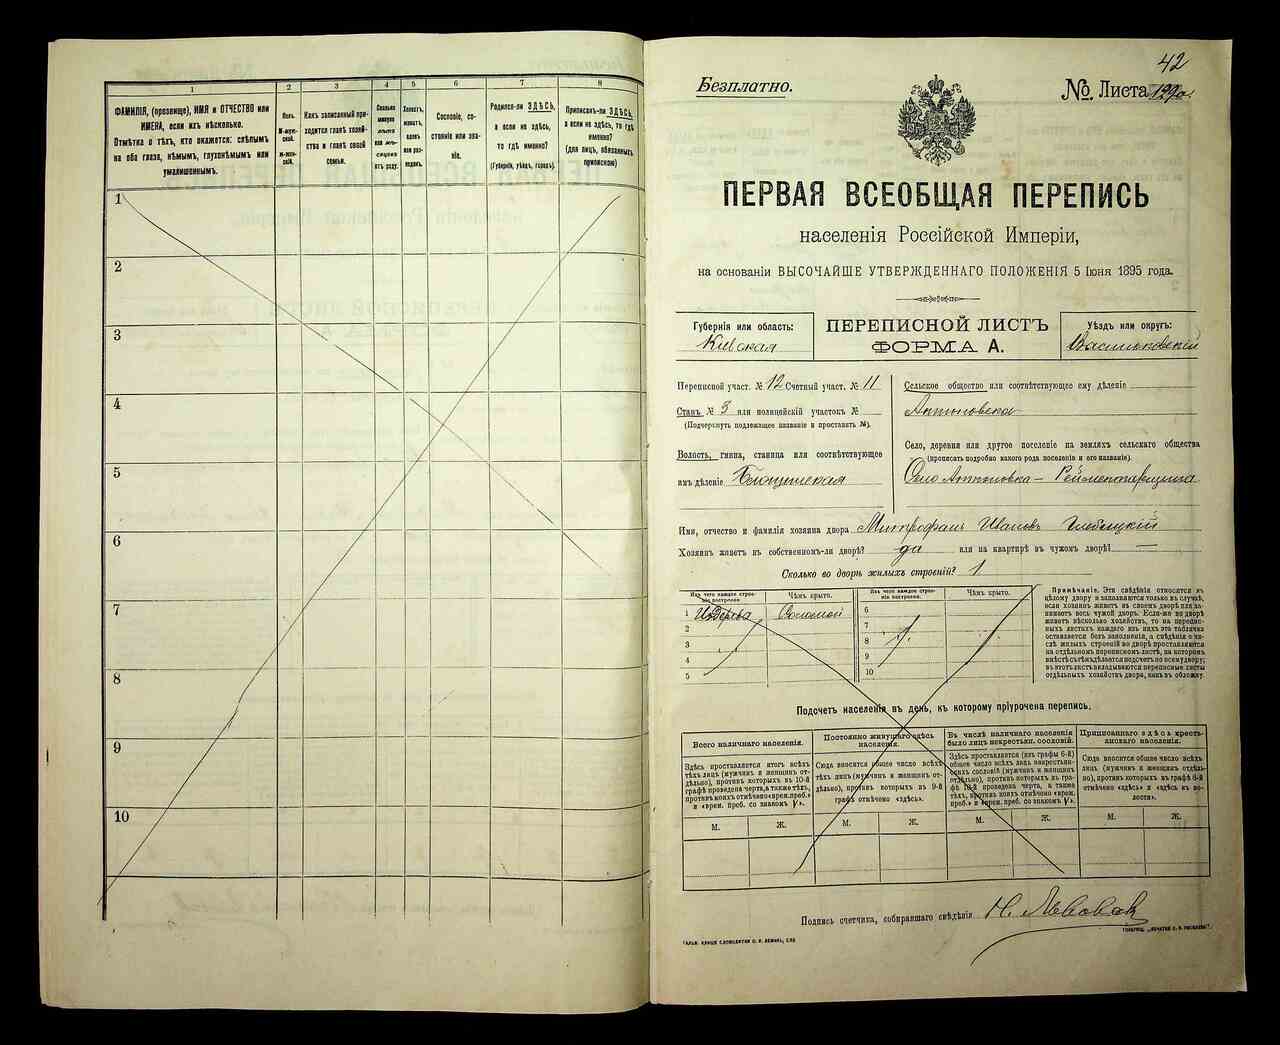 1
2
3
4
5
6
7
8
ФАМИЛІЯ, (прозвище), ИМЯ и ОТЧЕСТВО или
ИМЕНА, если ихъ нѣсколько.
Отмѣтка о тѣхъ, кто окажется: слѣпымъ
на оба глаза, нѣмымъ, глухонѣмымъ или
умалишеннымъ.
Полъ.
М-муж-
ской.
Ж-жен-
скій.
Какъ записанный при-
ходится главѣ хозяй-
ства и главѣ своей
семьи.
Сколько
минуло
лѣтъ
или мѣ-
сяцевъ
отъ роду.
Холостъ,
женатъ,
вдовъ
или раз-
веденъ.
Сословіе, со-
стояніе или зва-
ніе.
Родился-ли ЗДѢСЬ,
а если не здѣсь,
то гдѣ именно?
(Губернія, уѣздъ, городъ).
Приписанъ-ли ЗДѢСЬ,
а если не здѣсь, то гдѣ
именно?
(для лицъ, обязанныхъ
припискою)
1
2
3
4
5
6
7
8
9
10
42
Безплатно.
№ Листа
ПЕРВАЯ ВСЕОБЩАЯ ПЕРЕПИСЬ
населенія Россійской Имперіи,
на основаніи ВЫСОЧАЙШЕ УТВЕРЖДЕННАГО ПОЛОЖЕНІЯ 5 Іюня 1895 года.
Губернія или область:
Кіевская
ПЕРЕПИСНОЙ ЛИСТЪ
ФОРМА А.
Уѣздъ или округъ:
Васильковскій
Переписной участ. № 12 Счетный участ. № 11
Станъ № 3 или полицейскій участокъ №
(Подчеркнуть подлежащее названіе и проставить №).
Волость, гмина, станица или соотвѣтствующее
имъ дѣленіе
Сельское общество или соотвѣтствующее ему дѣленіе
Антоновка
Село, деревня или другое поселеніе на земляхъ сельскаго общества
(прописать подробно какого рода поселеніе и его названіе).
Село Антоновка –
Имя, отчество и фамилія хозяина двора Митрофанъ Ивановъ
Хозяинъ живетъ въ собственномъ-ли дворѣ? да или на квартирѣ въ чужомъ дворѣ? —
Сколько во дворѣ жилыхъ строеній? 1
Изъ чего каждое строе-
ніе построено
Чѣмъ крыто.
1 Издерева Соломой
2
3
4
5
Изъ чего каждое строе-
ніе построено.
Чѣмъ крыто.
6
7
8
9
10
Примѣчаніе. Эти свѣдѣнія относятся къ
цѣлому двору и заполняются только въ случаѣ,
если хозяинъ живетъ въ своемъ дворѣ или за-
нимаетъ весь чужой дворъ. Если-же во дворѣ
живетъ нѣсколько хозяйствъ, то на перепис-
ныхъ листахъ каждаго изъ нихъ эта табличка
оставляется безъ заполненія, а свѣдѣнія о чи-
слѣ жилыхъ строеній во дворѣ проставляются
на отдѣльномъ переписномъ листѣ, на которомъ
вмѣстѣ съ тѣмъ дѣлается подсчетъ по всему двору;
въ этотъ листъ вкладываются переписные листы
отдѣльныхъ хозяйствъ двора, какъ въ обложку.
Подсчетъ населенія въ день, къ которому пріурочена перепись.
Всего наличнаго населенія.
Здѣсь проставляется итогъ всѣхъ
тѣхъ лицъ (мужчинъ и женщинъ от-
дѣльно), противъ которыхъ въ 10-й
графѣ проведена черта, а также тѣхъ,
противъ коихъ отмѣчено «врем.
преб.» и «врем. преб. со знакомъ V».
Постоянно живущаго здѣсь
населенія.
Сюда вносится общее число всѣхъ
тѣхъ лицъ (мужчинъ и женщинъ от-
дѣльно), противъ которыхъ въ 9-й
графѣ отмѣчено «здѣсь».
Въ числѣ наличнаго населенія
было лицъ некрестьян. сословій.
Здѣсь проставляется (изъ графы 6-й)
общее число всѣхъ лицъ некрестьян-
скихъ сословій (мужчинъ и женщинъ
отдѣльно), противъ которыхъ въ гра-
фѣ 10-й проведена черта, а также
тѣхъ, противъ коихъ отмѣчено «врем.
преб.» и «врем. преб. со знакомъ V».
Приписаннаго здѣсь кресть-
янскаго населенія.
Сюда вносится общее число всѣхъ
лицъ (мужчинъ и женщинъ отдѣль-
но), противъ которыхъ въ графѣ 8-й
отмѣчено «здѣсь» и «здѣсь въ во-
лости».
М.
Ж.
М.
Ж.
М.
Ж.
М.
Ж.
Подпись счетчика, собиравшаго свѣдѣнія